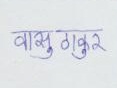 वासु ठाकुर